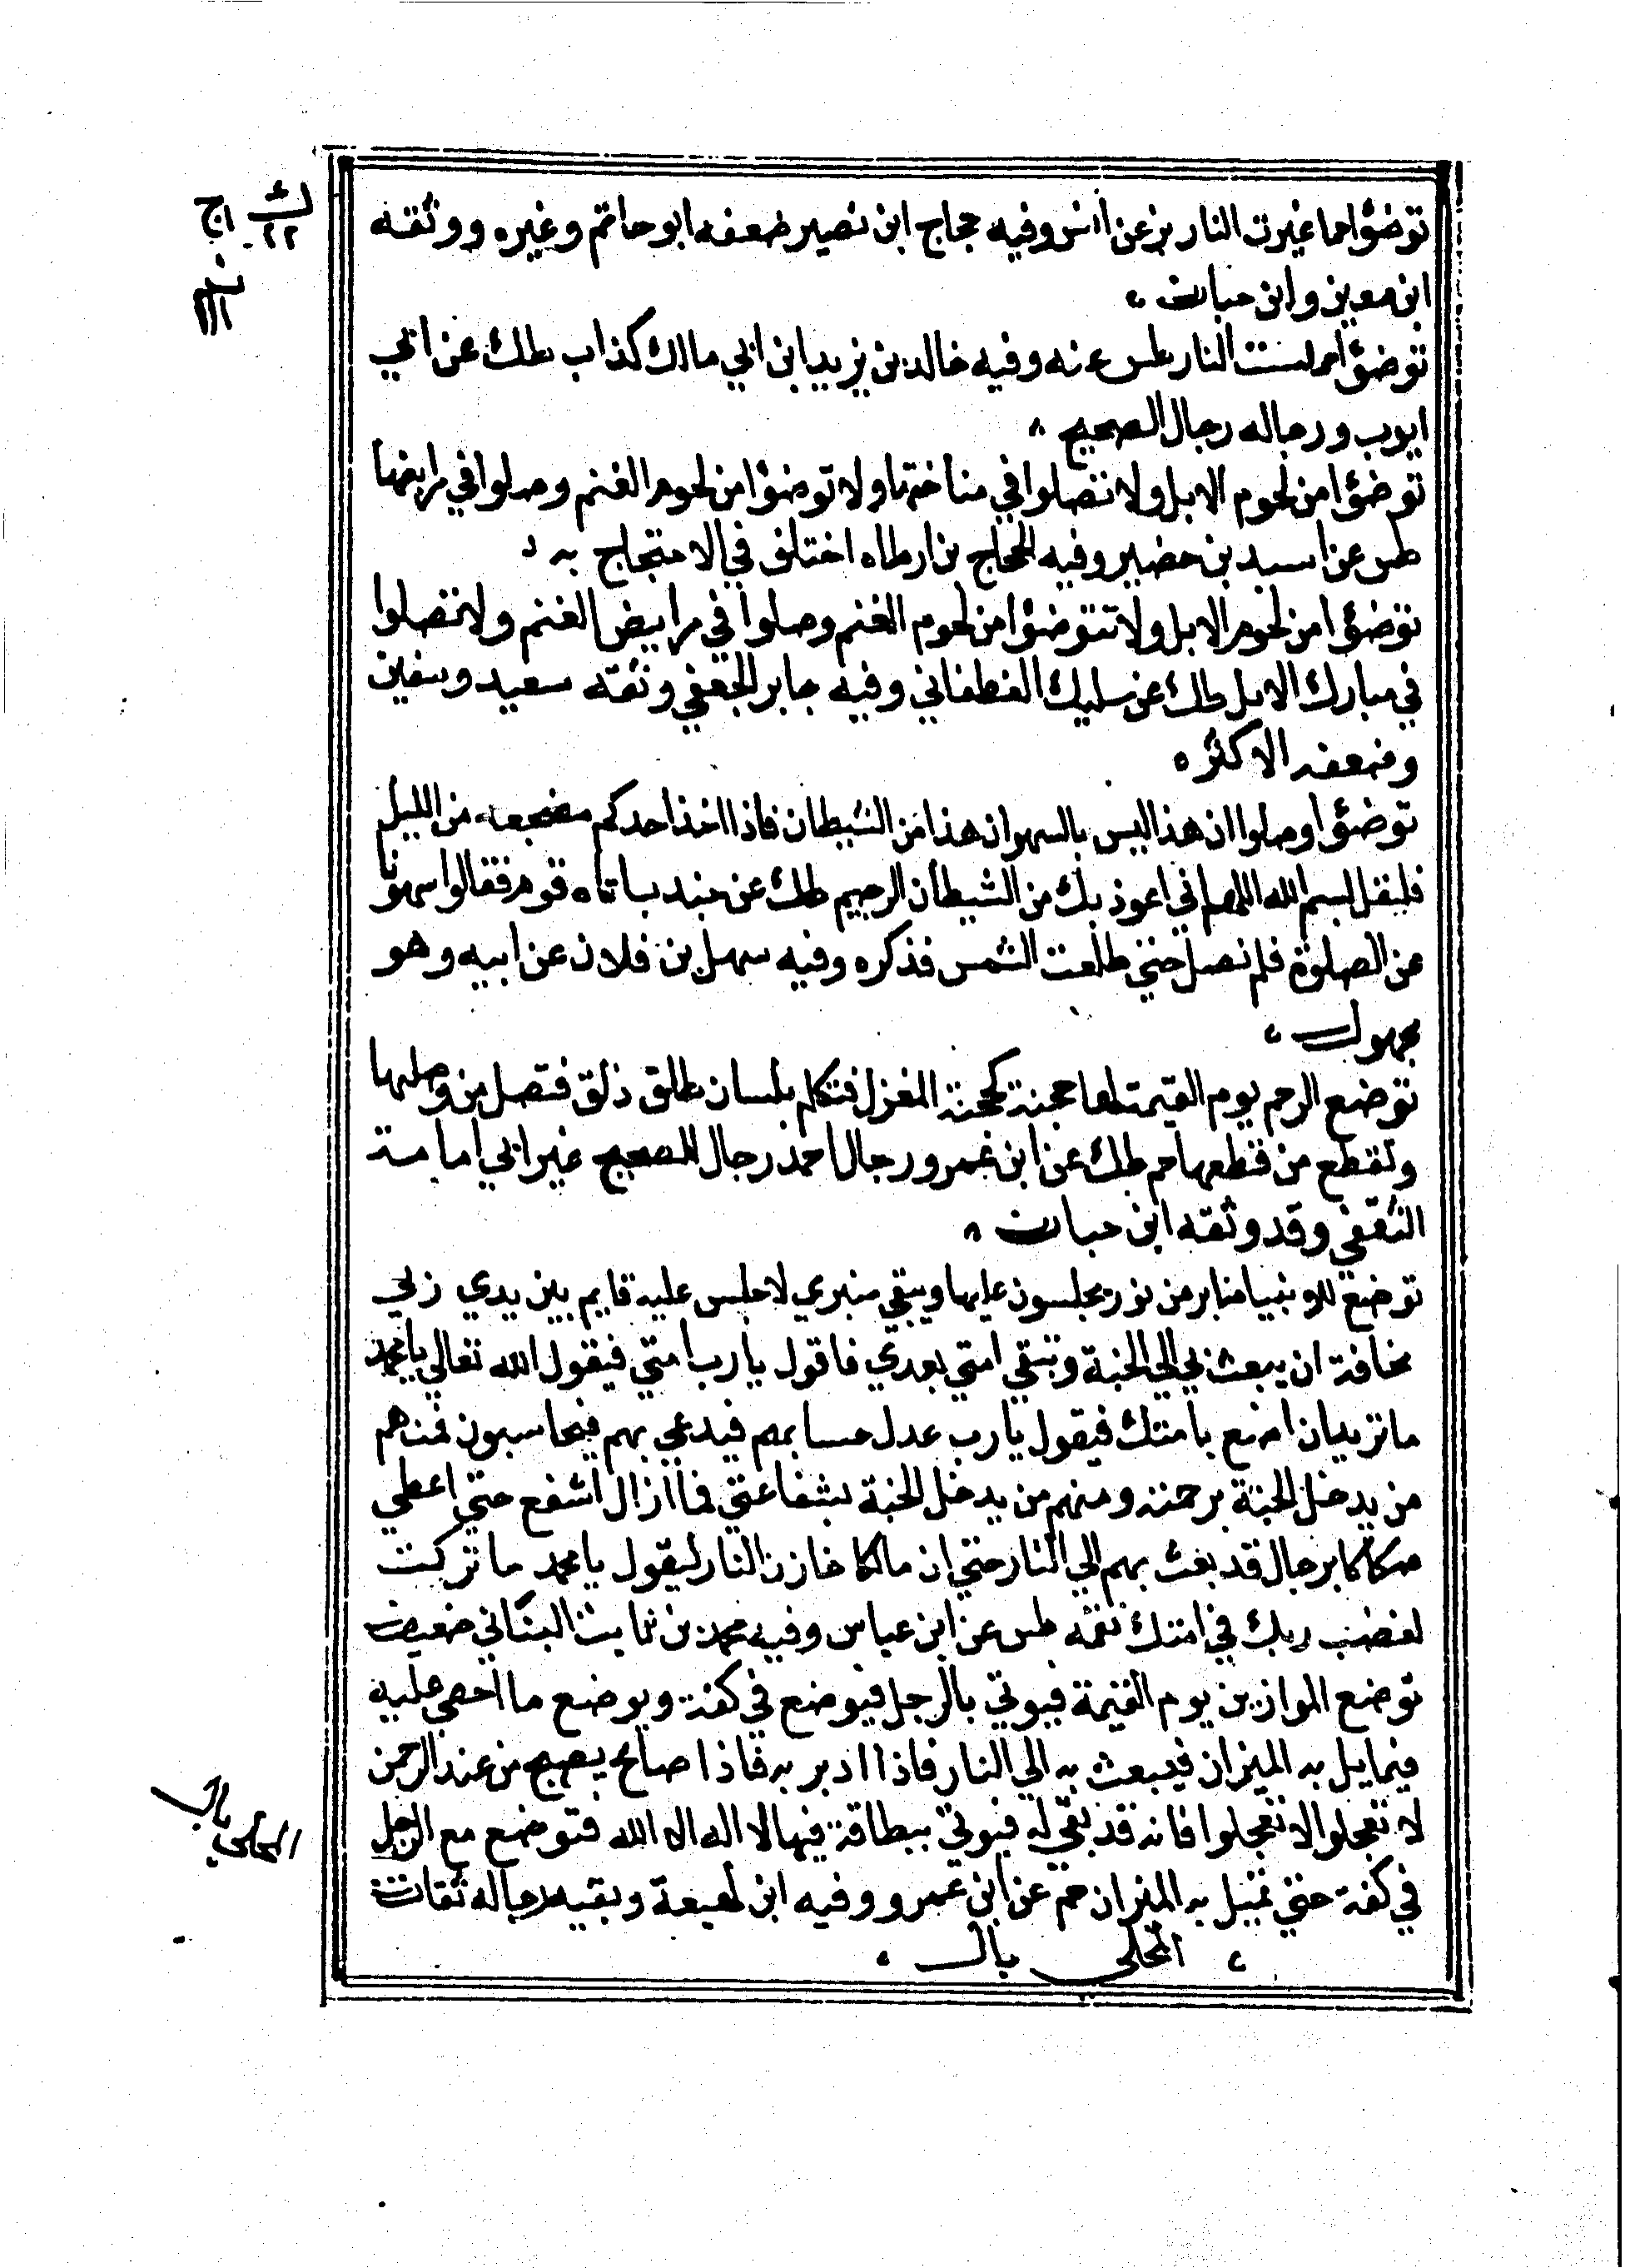 توضؤا مما غيرت النار بز عن انس وفيه حجاج ابن نصير ضعفه ابو حاتم وغيره ووثقه
ابن معين وابن حبان
توضؤا مما مست النار طس عنه وفيه خالد بن يزيد ابن ابي مالك كذاب طك عن ابي
ايوب ورجاله رجال الصحيح
توضؤا من لحوم الابل ولا تصلوا في مناختها ولا توضؤا من لحوم الغنم وصلوا في مرابضها
طس عن اسيد بن حضير وفيه الحجاج بن ارطاه اختلف في الاحتجاج به
توضؤا من لحوم الابل ولا تتوضؤا من لحوم الغنم وصلوا في مرابيض الغنم ولا تصلوا
في مبارك الابل طك عن سليك الغطفاني وفيه جابر الجعفي وثقه سعيد وسفين
وضعفه الاكثر
توضؤا وصلوا ان هذا ليس بالسهو ان هذا من الشيطان فاذا اخذ احدكم مضجعه من الليل
فليقل بسم الله اللهم اني اعوذ بك من الشيطان الرجيم طك عن جندب اتاه قوم فقالوا سهونا
عن الصلوة فلم نصل حتي طلعت الشمس فذكره وفيه سهل بن فلان عن ابيه وهو
مجهول
توضع الرحم يوم القيمة لها حجنة كحجنة المغزل فتكلم بلسان طلق ذلق فتصل من وصلها
وتقطع من قطعها حم طك عن ابن عمرو رجال احمد رجال الصحيح غير ابي امامة
الثقفي وقد وثقه ابن حبان
توضع للانبيا منابر من نور يجلسون عليها ويبقي منبري لا جلس عليه قايم بين يدي ربي
مخافة ان يبعث بي الي الجنة وتبقي امتي بعدي فاقول يا رب امتي فيقول الله تعالي يا محمد
ما تريد ان اصنع بامتك فيقول يا رب عدل حسابهم فيدعي بهم فيحاسبون فمنهم
من يدخل الجنة برحمته ومنهم من يدخل الجنة بشفاعتي فما ازال اشفع حتي اعطي
صكاكا برجال قد بعث بهم الي النار حتي ان مالكا خازن النار ليقول يا محمد ما تركت
لغضب ربك في امتك نقمه طس عن ابن عباس وفيه محمد بن ثابت البناني ضعيف
توضع الموازين يوم القيمة فيوتي بالرجل فيوضع في كفة ويوضع ما احصي عليه
فيمايل به الميزان فيبعث به الي النار فاذا ادبر به فاذا صائح يصيح من عند الرحمن
لا تعجلوا لا تعجلوا فانه قد بقي له فيوتي ببطاقة فيها لا اله الا الله فتوضع مع الرجل
في كفة حتي يميل به الميزان حم عن ابن عمرو وفيه ابن لهيعة وبقيه رجاله ثقات
المحلي بال
المحلي بال